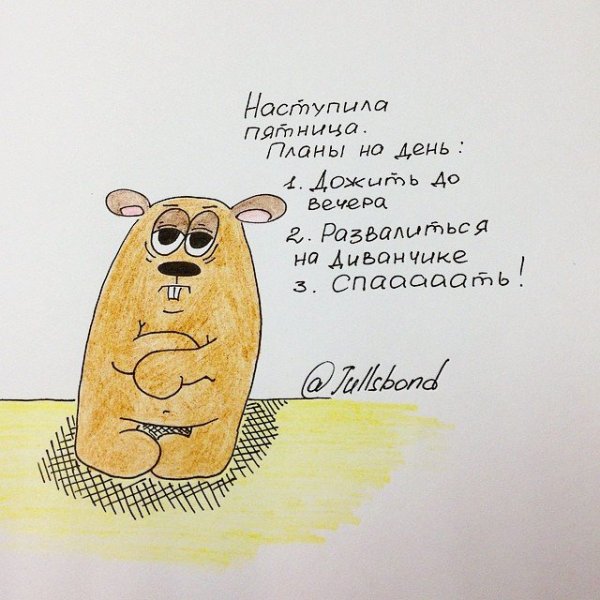 Наступила
пятница.
Планы на день:
1. Дожить до
вечера
2. Развалиться
на диванчике
3. Спааааать!
@Tullsbond